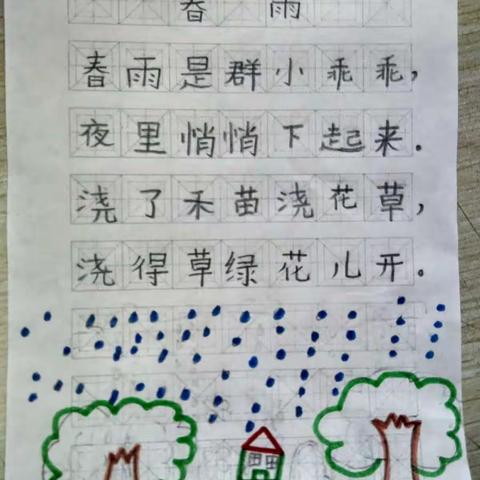 春雨
春雨是群小乖乖,
夜里悄悄下起来.
浇了禾苗浇花草,
浇得草绿花儿开。